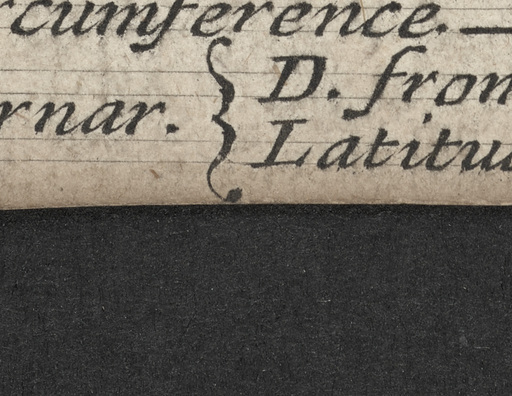 rcumference. —
rnar. { D. from
Latitu